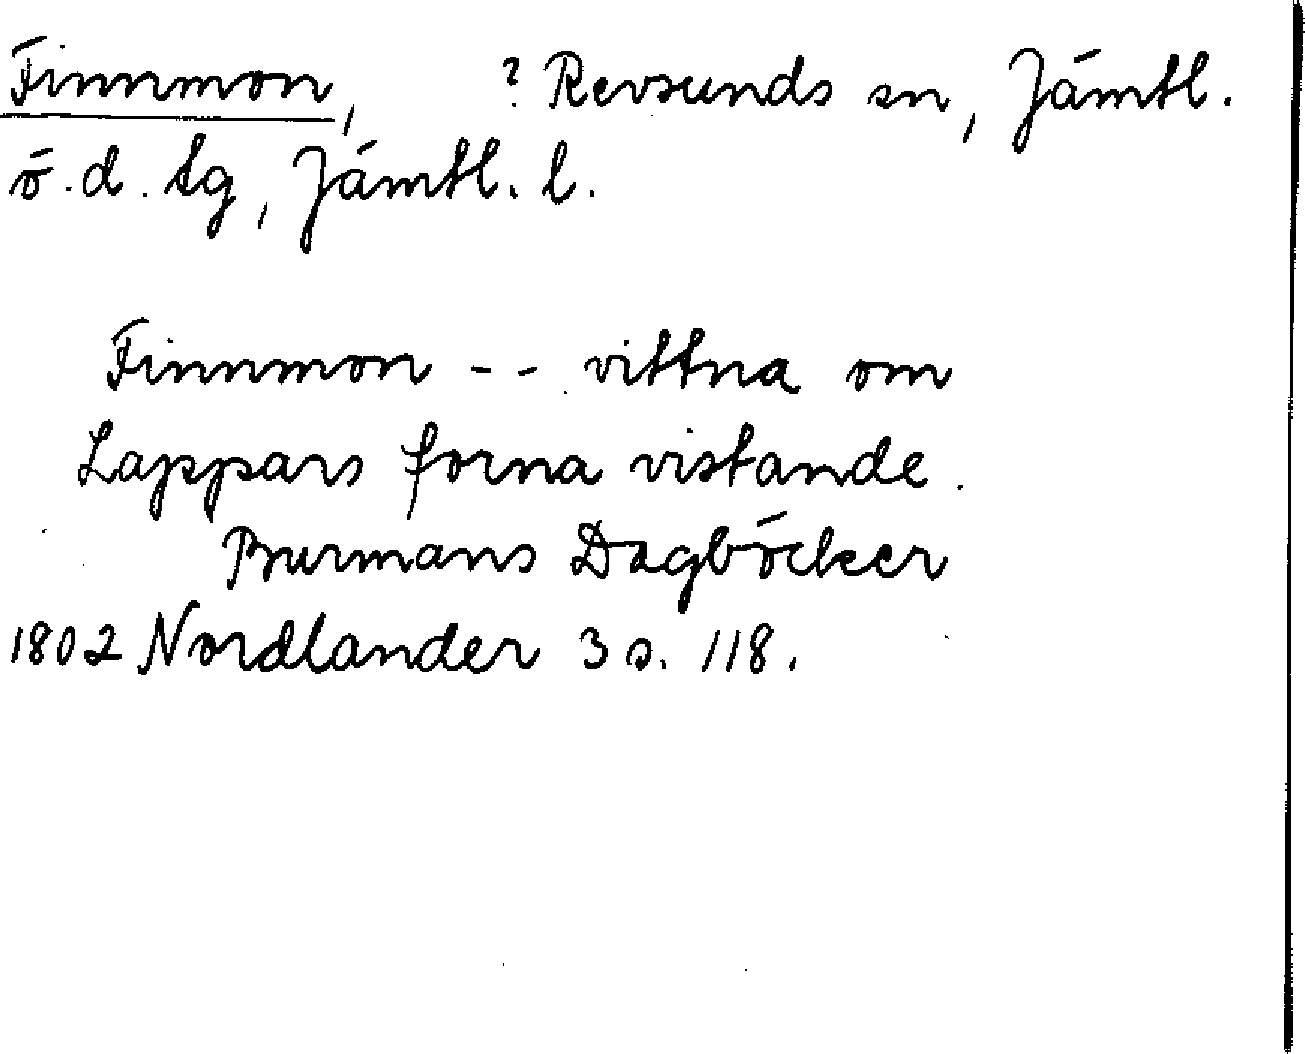 Finnmon, ? Revsunds sn, Jämtl.
ö.d. tg, Jämtl. l.
Finnmon -- vittna om
Lappars forna vistande.
Burmans Dagböcker
1802 Nordlander 3 s. 118.